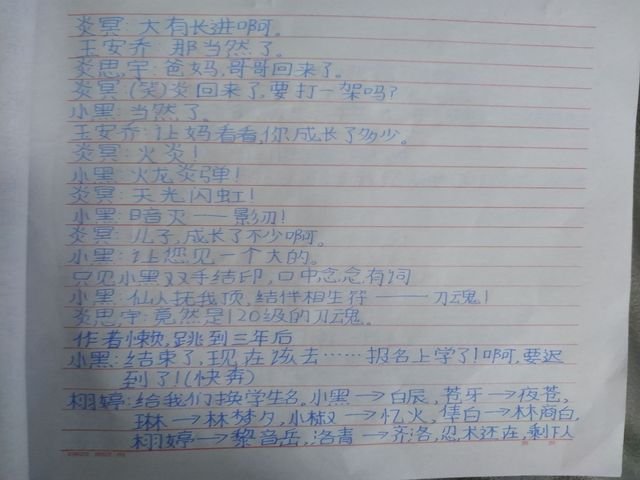 炎冥：大有长进啊。
王安乔：那当然了。
炎思宇：爸妈，哥哥回来了。
炎冥：(笑)炎回来了，要打一架吗？
小黑：当然了。
王安乔：让妈看看，你成长了多少。
炎冥：火炎！
小黑：火龙炎弹！
炎冥：天光闪虹！
小黑：暗灭——影刃！
炎冥：儿子，成长了不少啊。
小黑：让您见一个大的。
只见小黑双手结印，口中念念有词
小黑：仙人抚我顶，结伴相生符——刀魂！
炎思宇：竟然是120级的刀魂。
作者懒，跳到三年后
小黑：结束了，现在该去……报名上学了！啊，要迟
到了！(快奔)
栩婷：给我们换学生名。小黑→白辰，苍牙→夜苍，
琳→林梦夕，小椒→忆火，隼白→林商白，
栩婷→黎音岳，洛青→齐洛，忍术还在，剩下人